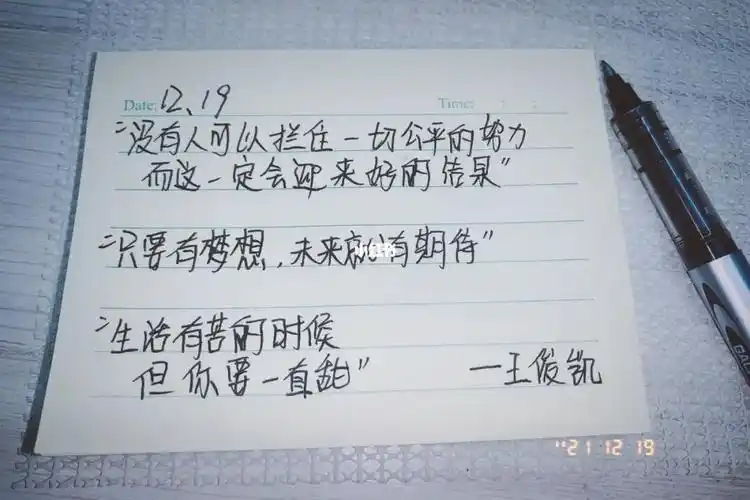 Date: 12、19 Time:
"没有人可以拦住一切公平的努力
而这一定会迎来好的结果"
"只要有梦想，未来就有期待"
小红书
"生活有苦的时候
但你要一直甜"
—王俊凯
'21 12 19